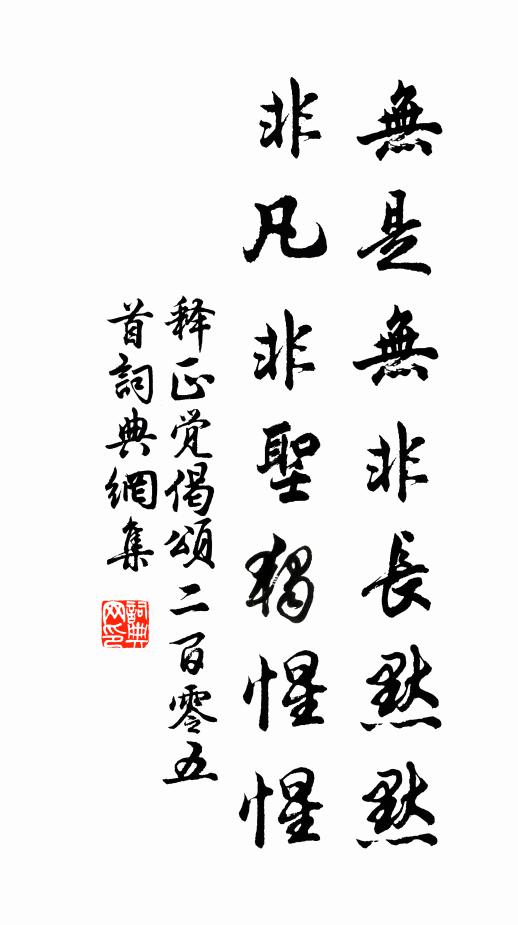 無是無非長默默
非凡非聖獨惺惺
释正觉偈頌二百零五
首詞典網集
詞典网印